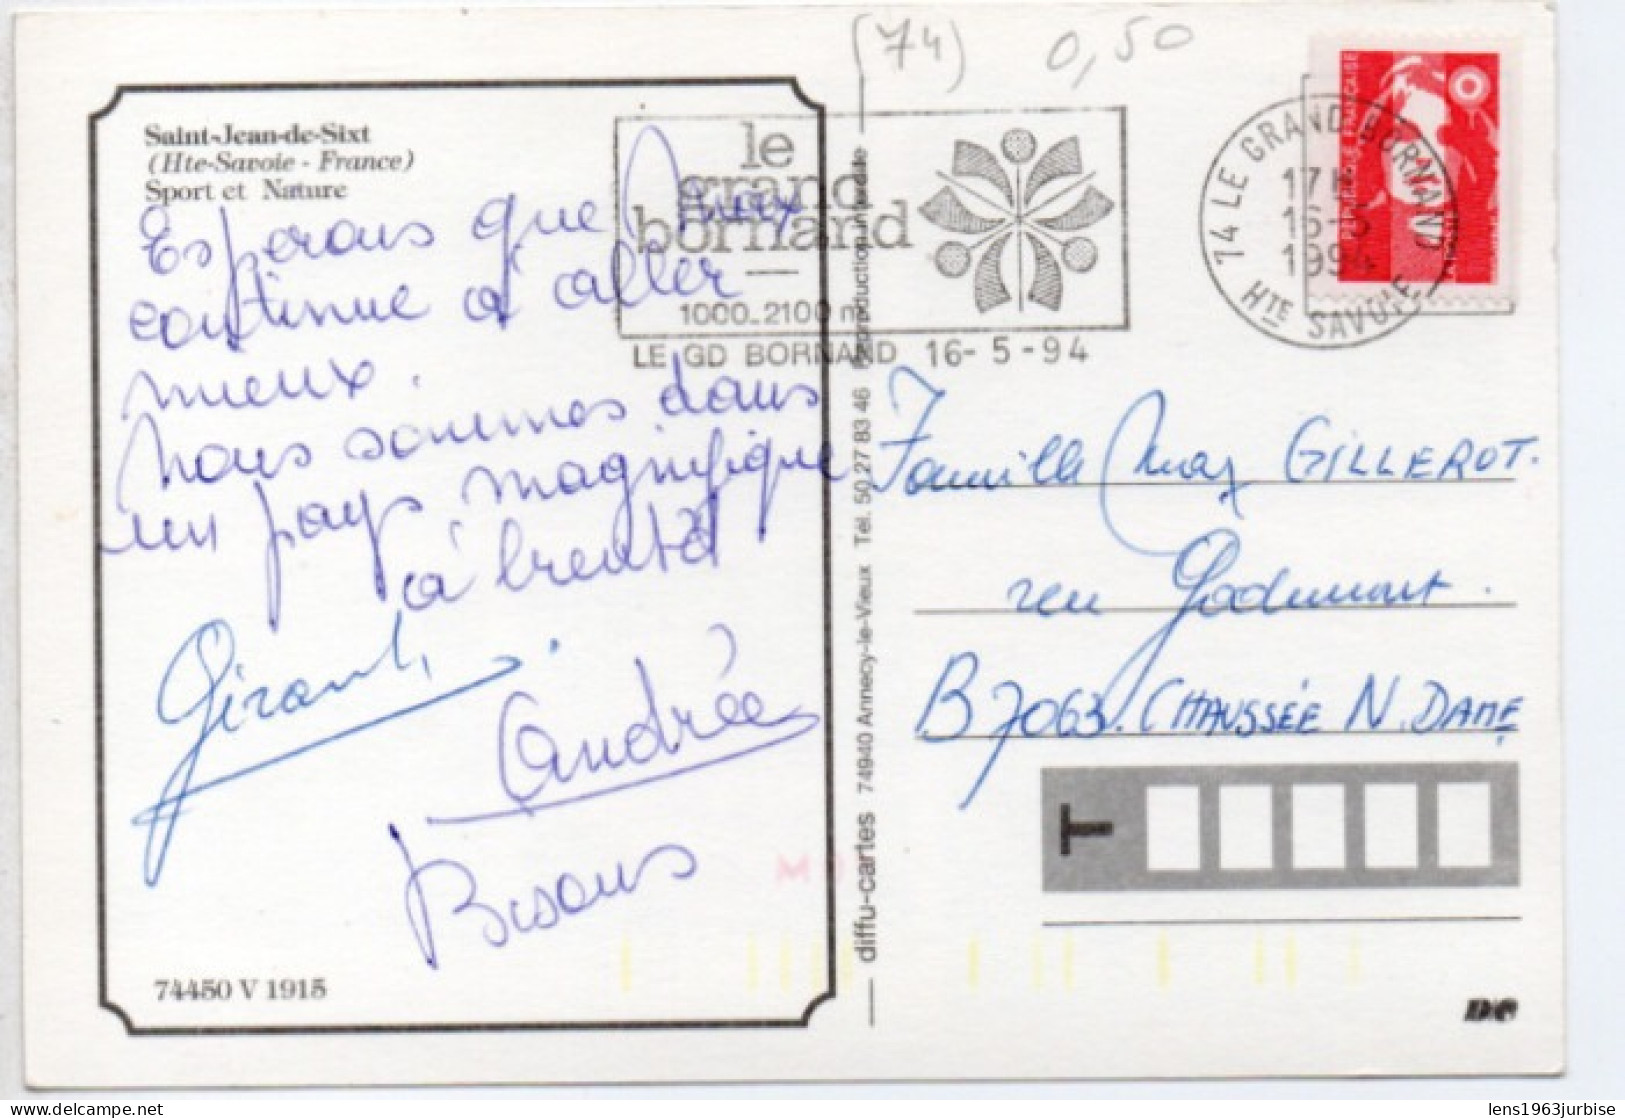 (74) 0,50
Saint-Jean-de-Sixt
(Hte-Savoie - France)
Sport et Nature
Esperons que Max
continue à aller
mieux.
Nous sommes dans
un pays magnifique
à bientôt
Andrée
Bisous
74450 V 1915
le
grand
bornand
1000_2100 m
LE GD BORNAND 16-5-94
74 LE GRAND-BORNAND
17H
16-5
1994
HTE SAVOIE
REPUBLIQUE FRANCAISE
diffu-cartes 74940 Annecy-le-Vieux Tél. 50.27 83 46 Reproduction interdite
Famille Max GILLEROT.
B 7063. CHAUSSÉE N. DAME
T
lens1963jurbise